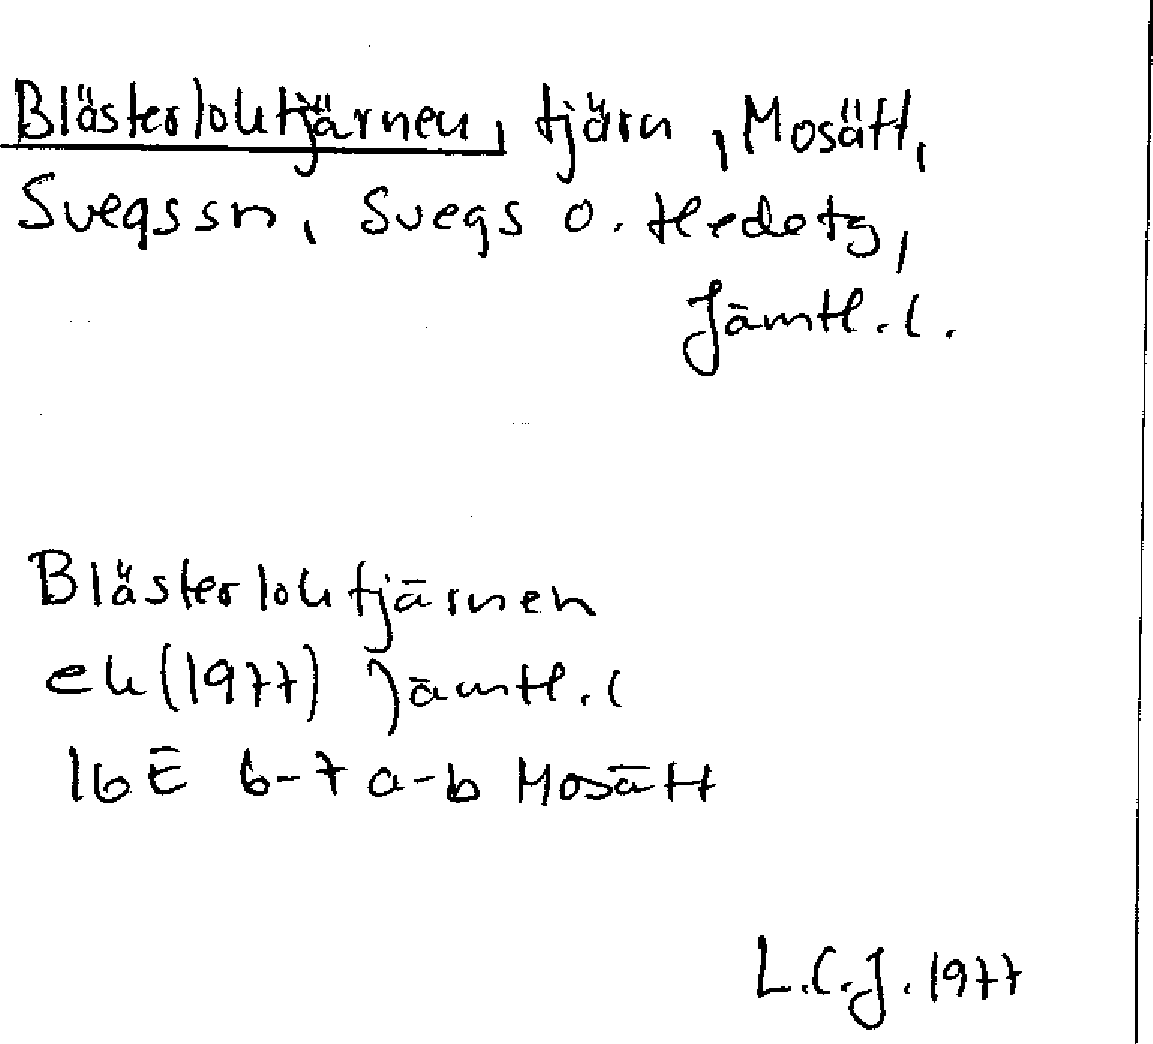 Blästerloktjärnen, tjärn, Mosätt,
Svegs sn, Svegs o. Hede tg,
Jämtl. l.
Blästerloktjärnen
ek (1977) Jämtl. l
16E 6-7 a-b Mosätt
L.C.J. 1977